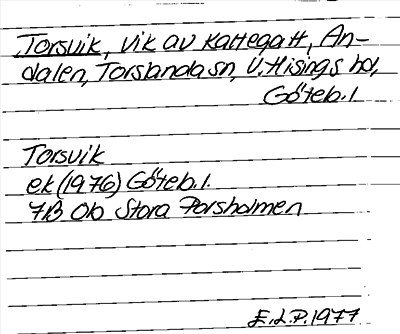 Torsvik, vik av Kattegatt, An-
dalen, Torslanda sn, V. Hisings hd,
Göteb. l
Torsvik
ek (1976) Göteb. l.
7B 0b Stora Porsholmen
E.L.P. 1977